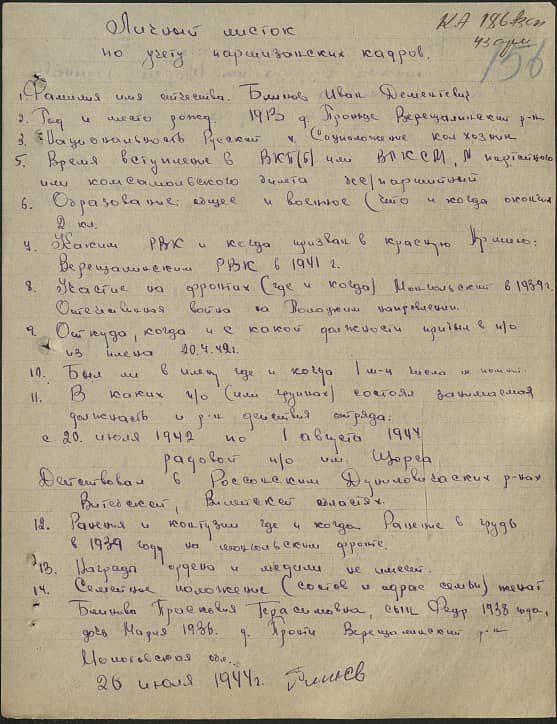 Личный листок
по учету партизанских кадров.
156
1. Фамилия имя отчества. Блинов Иван Дементевич
2. Год и место рожд. 1913 д. Верещагинский р-н
3. Национальность Русский 4. Соцположение колхозник
5. Время вступление в ВКП(б) или ВЛКСМ, N партийного
или комсамольского билета бес/партийный
6. Образование: общее и военное (что и когда окончил
2 кл.
7. Каким РВК и когда призван в красную Армию:
Верещагинским РВК в 1941 г.
8. Участие на фронтах (где и когда) Монгольский в 1939 г.
Отечественая война на направлении.
9. Откуда, когда и с какой должности прибыл в п/о
из плена 20.7.42 г.
10. Был ли в плену где и когда 1 м-ц числа не
11. В каких п/о (или группах) состоял занимаемая
должность и р-н действия отряда:
с 20 июля 1942 по 1 августа 1944
радовой п/о им. Щорса
Действовал в Россонским Дуниловичаских р-нах
Витебской, Вилейской областях.
12. Ранения и контузии где и когда. Ранение в грудь
в 1939 году на монгольским фронте.
13. Награды ордена и медали не имеет.
14. Семейное положение (состов и адрас семьи) женат
Блинова Просковия Герасимовна, сын Федр 1938 года,
дочь Мария 1936. д. Верещагинский р-н
Молотовская обл.
26 июля 1944 г. Блинов